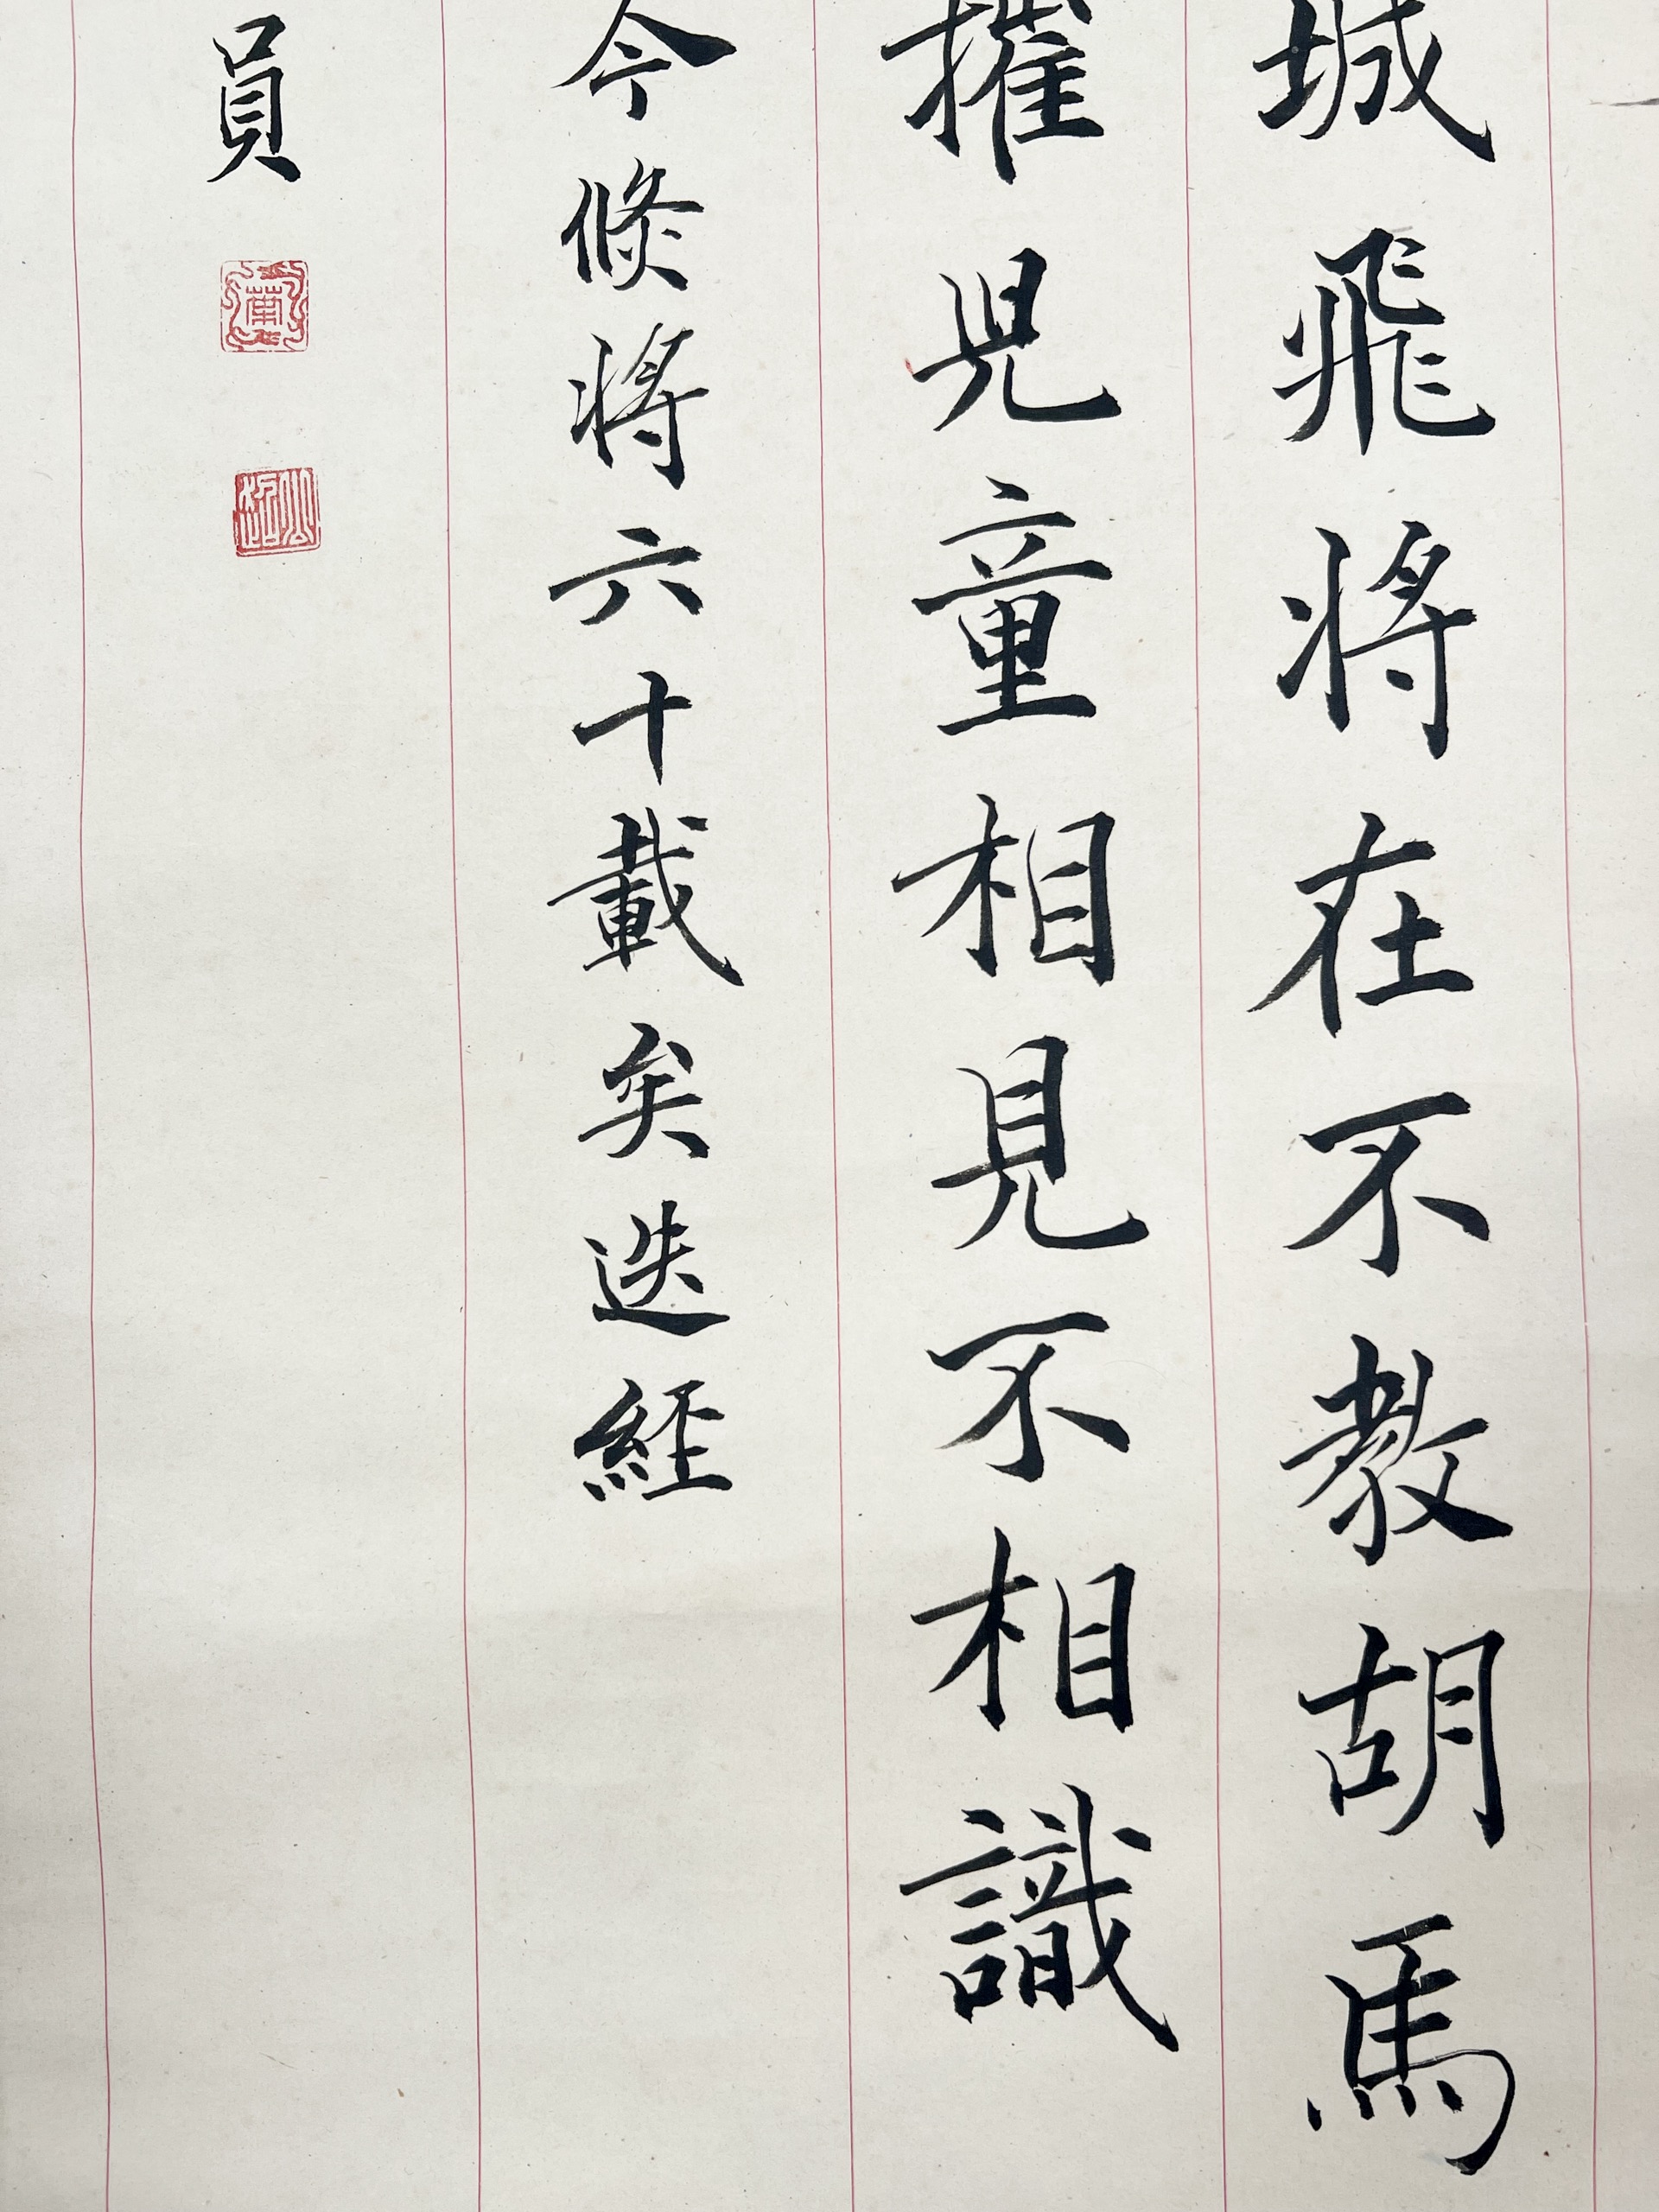 城飛將在不教胡馬
摧児童相見不相識
今倐將六十載矣迭經
員